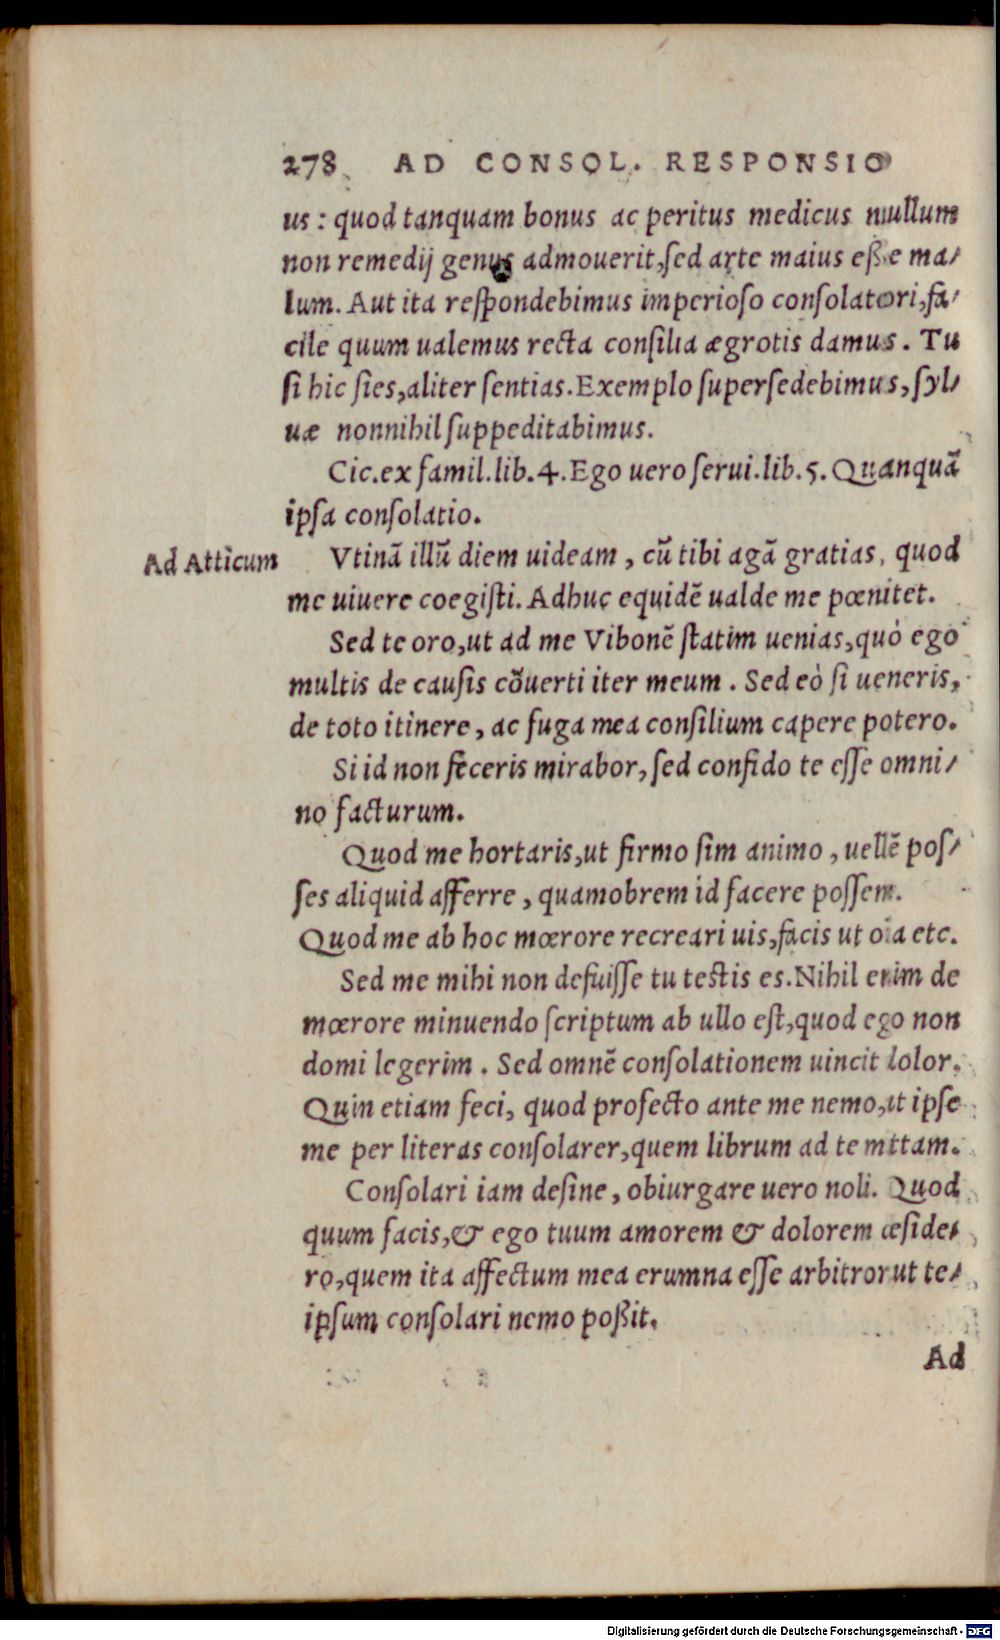 278 AD CONSOL. RESPONSIO
us : quod tanquam bonus ac peritus medicus nullum
non remedij genus admouerit, sed arte maius eße ma/
lum. Aut ita respondebimus imperioso consolatori, fa/
cile quum ualemus recta consilia ægrotis damus. Tu
si hic sies, aliter sentias. Exemplo supersedebimus, syl/
uæ nonnihil suppeditabimus.
Cic. ex famil. lib. 4. Ego uero serui. lib. 5. Quanquã
ipsa consolatio.
Ad Atticum
Vtinã illũ diem uideam, cũ tibi agã gratias, quod
me uiuere coegisti. Adhuc equidẽ ualde me pœnitet.
Sed te oro, ut ad me Vibonẽ statim uenias, quò ego
multis de causis cõuerti iter meum. Sed eò si ueneris,
de toto itinere, ac fuga mea consilium capere potero.
Si id non feceris mirabor, sed confido te esse omni/
no facturum.
Quod me hortaris, ut firmo sim animo, uellẽ pos/
ses aliquid afferre, quamobrem id facere possem.
Quod me ab hoc mœrore recreari uis, facis ut oĩa etc.
Sed me mihi non defuisse tu testis es. Nihil enim de
mœrore minuendo scriptum ab ullo est, quod ego non
domi legerim. Sed omnẽ consolationem uincit dolor.
Quin etiam feci, quod profecto ante me nemo, ut ipse
me per literas consolarer, quem librum ad te mittam.
Consolari iam desine, obiurgare uero noli. Quod
quum facis, & ego tuum amorem & dolorem deside/
ro, quem ita affectum mea erumna esse arbitror ut te/
ipsum consolari nemo poßit.
Ad
Digitalisierung gefördert durch die Deutsche Forschungsgemeinschaft - DFG